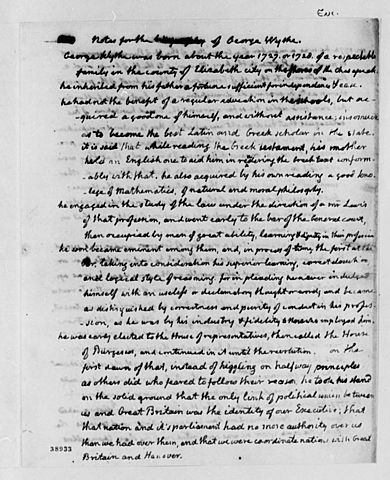 Enc.
Notes for the biography of George Wythe.
George Wythe was born about the year 1727. or 1728. of a respectable
family in the county of Elizabeth city on the shores of the Chesapeak.
he inherited from his father a fortune sufficient for independance & ease.
he had not the benefit of a regular education in the schools, but ac-
quired a good one of himself, and without assistance; insomuch
as to become the best Latin and Greek scholar in the state.
it is said that while reading the Greek testament, his mother
held an English one to aid him in rendering the Greek text conform-
ably with that. he also acquired by his own reading a good know-
lege of Mathematics, of natural and moral philosophy.
he engaged in the study of the law under the direction of a mr Lewis
of that profession, and went early to the bar of the General court,
then occupied by men of great ability, learning & dignity in their profession
he soon became eminent among them, and, in process of time, the first at the
bar, taking into consideration his superior learning, correct elocution
and logical style of reasoning. for in pleading he never indulged
himself with an useless or declamatory thought or word; and became
as distinguished by correctness and purity of conduct in his profes-
-sion, as he was by his industry & fidelity to those who employed him.
he was early elected to the House of representatives, then called the House
of Burgesses, and continued in it until the revolution. on the
first dawn of that, instead of higgling on halfway principles
as others did who feared to follow their reason, he took his stand
on the solid ground that the only link of political union between
us and Great Britain was the identity of our Executive; that
that nation and it's parliament had no more authority over us
than we had over them, and that we were coordinate nations with Great
Britain and Hanover.
38933